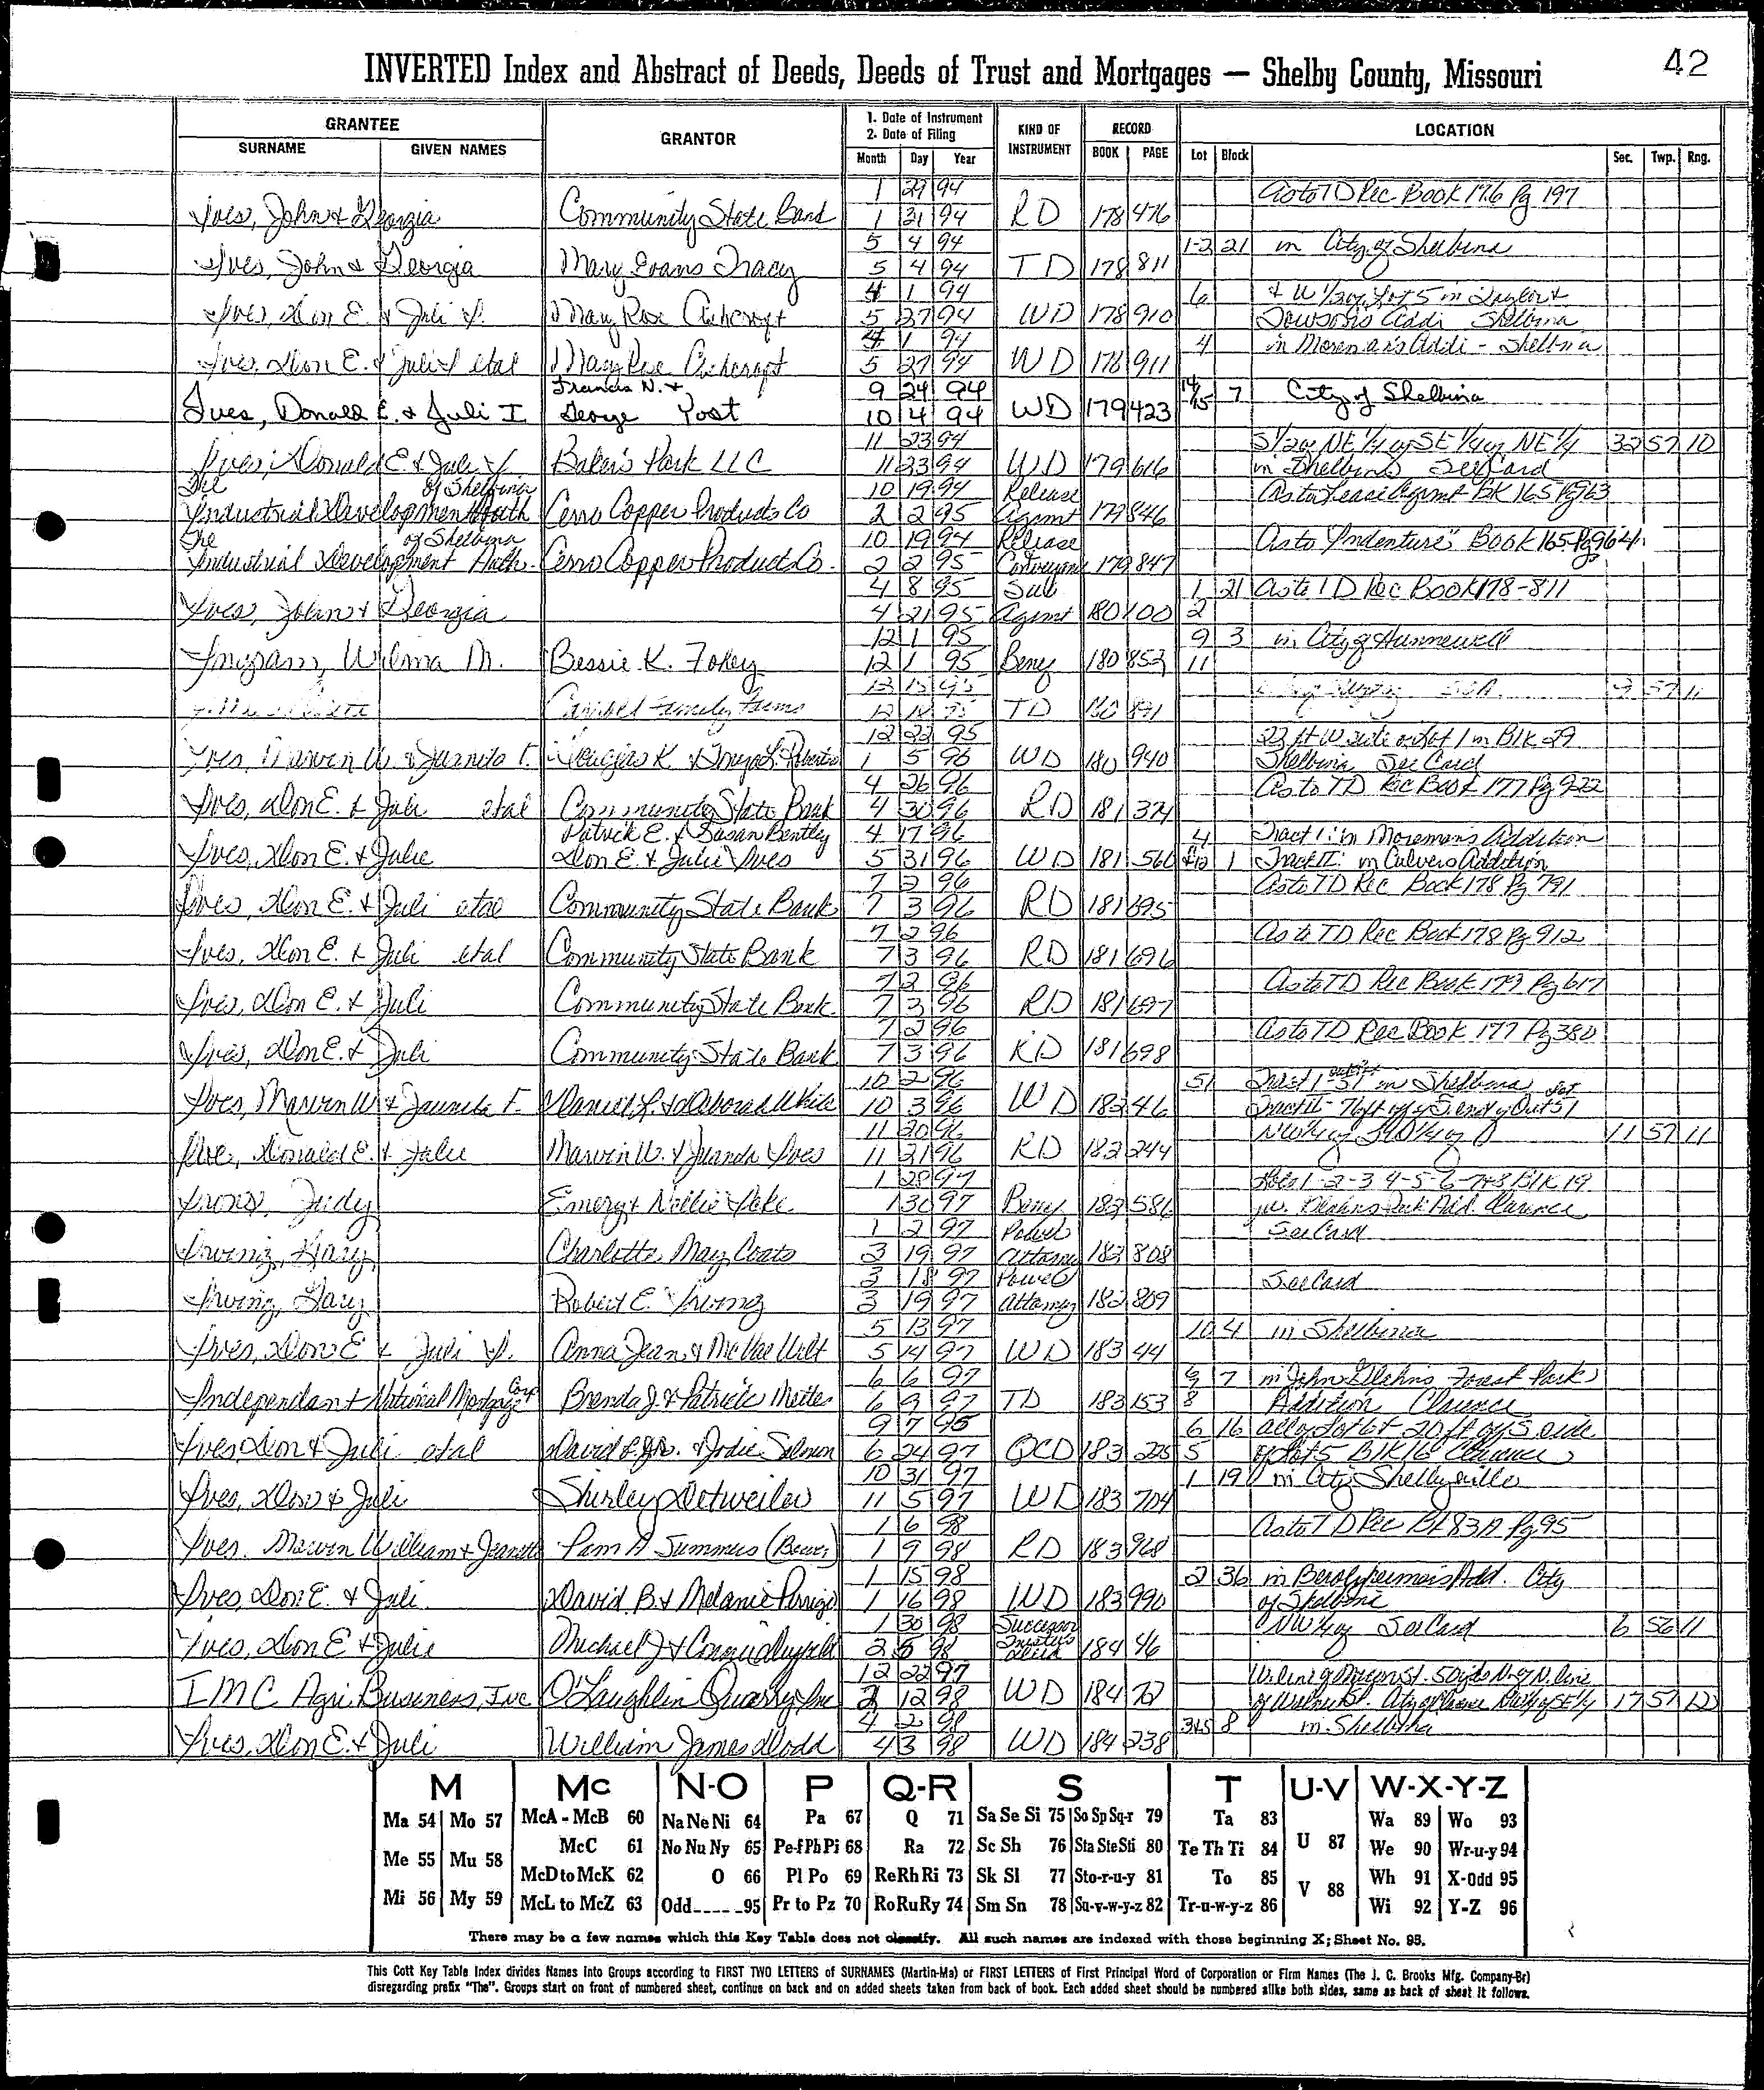 42
INVERTED Index and Abstract of Deeds, Deeds of Trust and Mortgages — Shelby County, Missouri
GRANTEE
SURNAME GIVEN NAMES
GRANTOR
1. Date of Instrument
2. Date of Filing
Month Day Year
KIND OF INSTRUMENT
RECORD
BOOK PAGE
LOCATION
Lot Block Sec. Twp. Rng.
1 29 94 As to TD Rec Book 176 Pg 197
Ives, John & Georgia Community State Bank 1 31 94 RD 178 476
5 4 94 1-2 21 in City of Shelbina
Ives, John & Georgia Mary Evans Tracy 5 4 94 TD 178 811
4 1 94 6 & W 1/2 of Lot 5 in Taylor &
Ives, Don E. & Juli I. Mary Rose Ashcroft 5 27 94 WD 178 910 Dowsons Addi Shelbina
4 1 94 4 in Moreman's Addi - Shelbina
Ives, Don E. & Juli I etal Mary Rose Ashcroft 5 27 94 WD 178 911
Francis N. & 9 24 94 14 7 City of Shelbina
Ives, Donald E. & Juli I George Yost 10 4 94 WD 179 423 15
11 23 94 S 1/2 of NE 1/4 of SE 1/4 of NE 1/4 32 57 10
Ives, Donald E & Juli I Baker's Park LLC 11 23 94 WD 179 616 in Shelbina See Card
The of Shelbina 10 19 94 Release As to Lease Agrmt BK 165 Pg 63
Industrial Development Auth Cerro Copper Products Co 2 2 95 Agrmt 179 846
The of Shelbina 10 19 94 Release As to "Indenture" Book 165 Pg 964
Industrial Development Auth. Cerro Copper Product Co. 2 2 95 Conveyance 179 847
4 8 95 Sub 1 21 As to TD Rec Book 178-811
Ives, John & Georgia 4 21 95 Agmt 180 100 2
12 1 95 9 3 in City of Hunnewell
Ingram, Wilma M. Bessie K. Foley 12 1 95 Beny 180 853 11
Campbell Family Farms TD 57 11
12 22 95 23 ft W side of Lot 1 in Blk 29
Ives, Marwin W. & Juanita F. Douglas K & Tonya L. Robertson 1 5 96 WD 180 940 Shelbina See Card
4 26 96 As to TD Rec Book 177 Pg 922
Ives, Don E. & Juli etal Community State Bank 4 30 96 RD 181 374
Patrick E. & Susan Bentley 4 17 96 4 Tract I: in Moreman's Addition
Ives, Don E. & Julie Don E. & Julie Ives 5 31 96 WD 181 560 1 Tract II: in Culvers Addition
7 2 96 As to TD Rec Book 178 Pg 791
Ives, Don E. & Juli etal Community State Bank 7 3 96 RD 181 695
7 2 96 As to TD Rec Book 178 Pg 912
Ives, Don E. & Juli etal Community State Bank 7 3 96 RD 181 696
7 2 96 As to TD Rec Book 179 Pg 617
Ives, Don E. & Juli Community State Bank 7 3 96 RD 181 697
7 2 96 As to TD Rec Book 177 Pg 380
Ives, Don E. & Juli Community State Bank 7 3 96 RD 181 698
10 2 96 51 Tract 1 - outlot 51 in Shelbina
Ives, Marwin W & Juanita F. Daniel L. & Deborah White 10 3 96 WD 182 46 Tract II - 76 ft off of S. end of Out Lot 51
11 20 96 NW 1/4 of 11 57 11
Ives, Donald E. & Julie Marwin W. & Juanita Ives 11 21 96 RD 182 244
1 28 97 Lots 1-2-3 4-5-6-7+8 Blk 19
Judy Emery & Nellie 1 30 97 Beny 182 586 Add. Clarence
1 2 97 Power See Card
Irving, Gary Charlotte May Coats 3 19 97 Attorney 182 808
3 18 97 Power See Card
Irving, Gary Robert E. Irving 3 19 97 Attorney 182 809
5 13 97 10 4 in Shelbina
Ives, Don E & Juli I. Anna Jean & McVae Wilt 5 14 97 WD 183 44
6 6 97 9 7 in John Forest Park
Independant National Mortgage Corp Brenda J. & Patrick Mettes 6 9 97 TD 183 153 8 Addition Clarence
9 7 95 6 16 all of Lot 6 & 20 ft off S. side
Ives Don & Juli etal David L. Jr. & Jodie Salmon 6 24 97 QCD 183 225 5 of Lot 5 Blk 16 Clarence
10 31 97 1 19 in City Shelbyville
Ives, Don & Juli Shirley Detweiler 11 5 97 WD 183 704
1 6 98 As to TD Rec Bk 83A Pg 95
Ives, Marwin William & Jeanette Pam A Summers (Beney) 1 9 98 RD 183 968
1 15 98 2 36 in Berolzheimer's Add. City
Ives, Don E. & Juli David B. & Melanie Perrigo 1 16 98 WD 183 990 of Shelbina
1 30 98 Successor Trustees Deed NW 1/4 of See Card 6 56 11
Ives, Don E & Julie Michael J. & Connie 2 5 98 184 46
12 22 97 W. line of St. 50 yds N. of N. line
IMC Agri. Business, Inc O'Laughlin Quarry Inc 2 12 98 WD 184 72 of Walnut St. City of 17 57 12
4 2 98 3&5 8 in Shelbina
Ives, Don E. & Juli William James Dodd 4 3 98 WD 184 238
M Mc N-O P Q-R S T U-V W-X-Y-Z
Ma 54 Mo 57 McA - McB 60 Na Ne Ni 64 Pa 67 Q 71 Sa Se Si 75 So Sp Sq-r 79 Ta 83 Wa 89 Wo 93
McC 61 No Nu Ny 65 Pe-f Ph Pi 68 Ra 72 Sc Sh 76 Sta Ste Sti 80 Te Th Ti 84 U 87 We 90 Wr-u-y 94
Me 55 Mu 58 McD to McK 62 O 66 Pl Po 69 Re Rh Ri 73 Sk Sl 77 Sto-r-u-y 81 To 85 V 88 Wh 91 X-Odd 95
Mi 56 My 59 McL to McZ 63 Odd-----95 Pr to Pz 70 Ro Ru Ry 74 Sm Sn 78 Su-v-w-y-z 82 Tr-u-w-y-z 86 Wi 92 Y-Z 96
There may be a few names which this Key Table does not classify. All such names are indexed with those beginning X; Sheet No. 95.
This Cott Key Table Index divides Names into Groups according to FIRST TWO LETTERS of SURNAMES (Martin-Ma) or FIRST LETTERS of First Principal Word of Corporation or Firm Names (The J. C. Brooks Mfg. Company-Br)
disregarding prefix "The". Groups start on front of numbered sheet, continue on back and on added sheets taken from back of book. Each added sheet should be numbered alike both sides, same as back of sheet it follows.